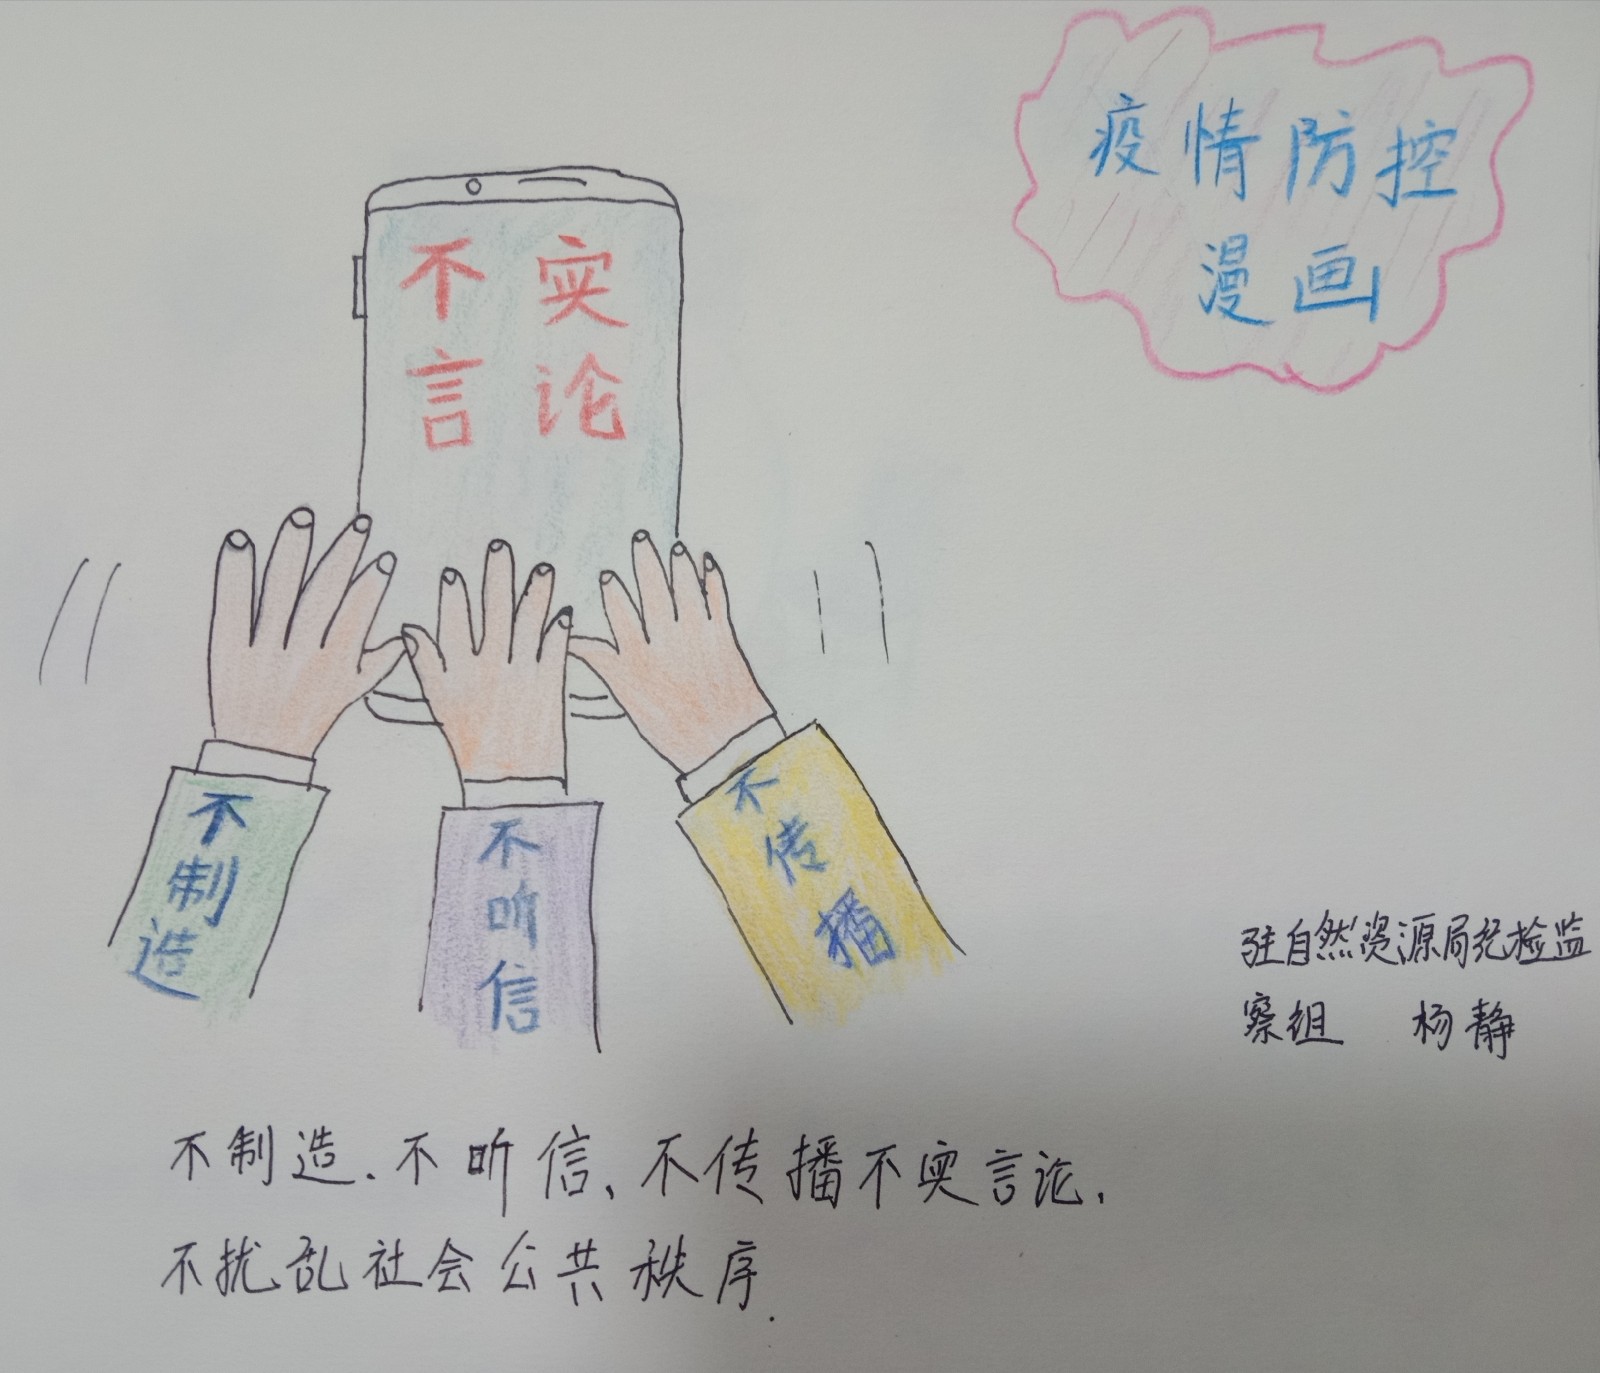 疫情防控
漫画
不实
言论
不制造
不听信
不传播
驻自然资源局纪检监
察组 杨静
不制造、不听信、不传播不实言论,
不扰乱社会公共秩序.